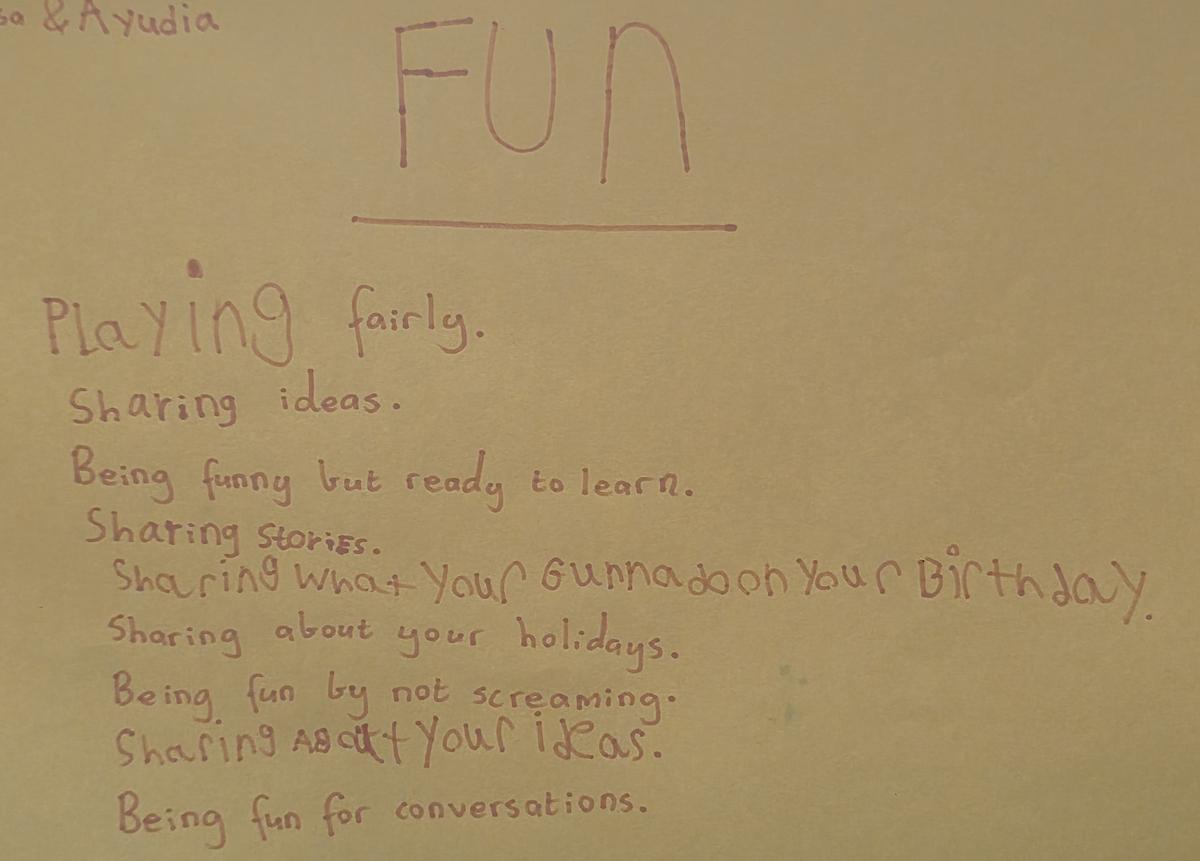 & Ayudia
FUn
Playing fairly.
Sharing ideas.
Being funny but ready to learn.
Sharing stories.
Sharing what your Gunna do on your Birthday.
Sharing about your holidays.
Being fun by not screaming.
Sharing your ideas.
Being fun for conversations.